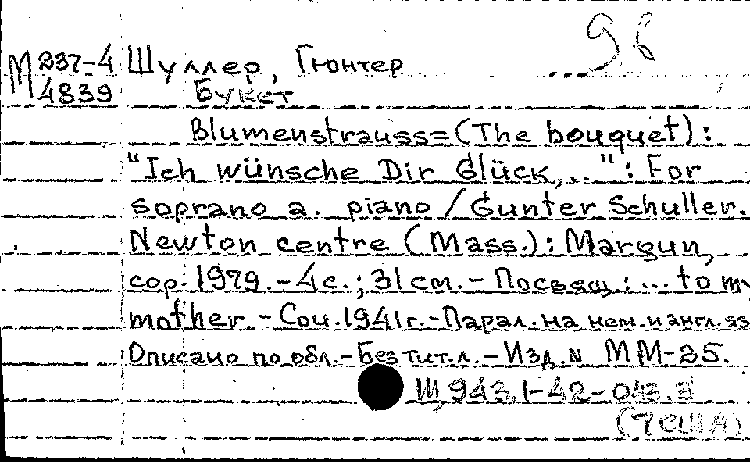 96
М 237-4 Шуллер, Гюнтер
4839 Букет
Blumenstrauss=(The bouquet):
"Ich wünsche Dir Glück,..": For
soprano a. piano / Gunter Schuller.
Newton centre (Mass.): Margun,
cop. 1979.-4с.; 31см.-Посвящ.:...to my
mother.-Соч.1941г.-Парал.на нем.и англ.яз
Описано по обл.-Без тит.л.-Изд.N ММ-35.
Щ943.1-42-
(7США)